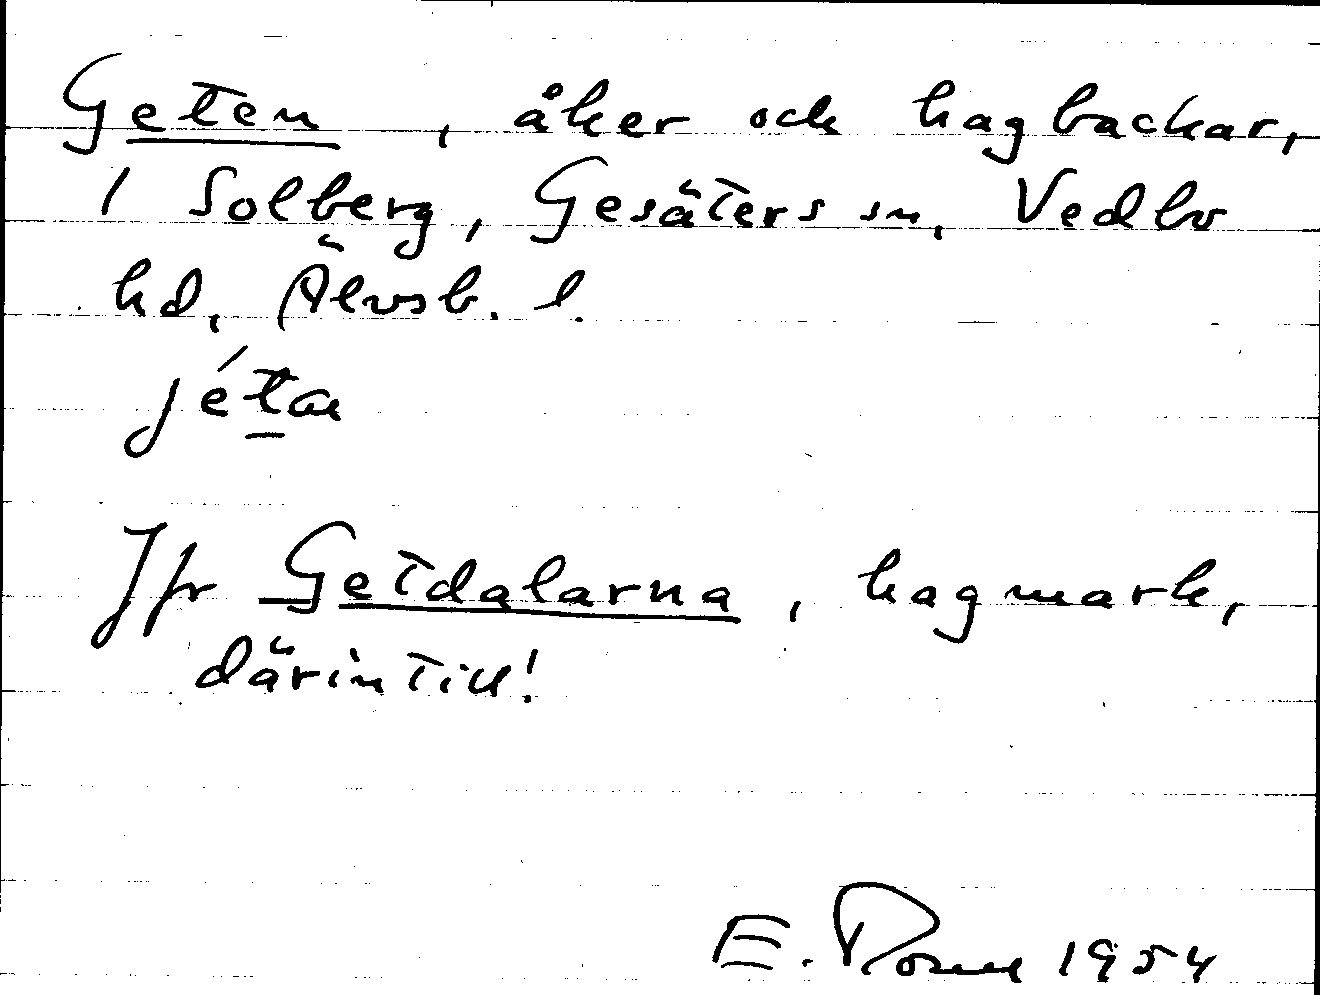 Geten, åker och hagbackar,
1 Solberg, Gesäters sn, Vedbo
hd, Älvsb. l.
jétan
Jfr Getdalarna, hagmark,
därintill!
E. 1954